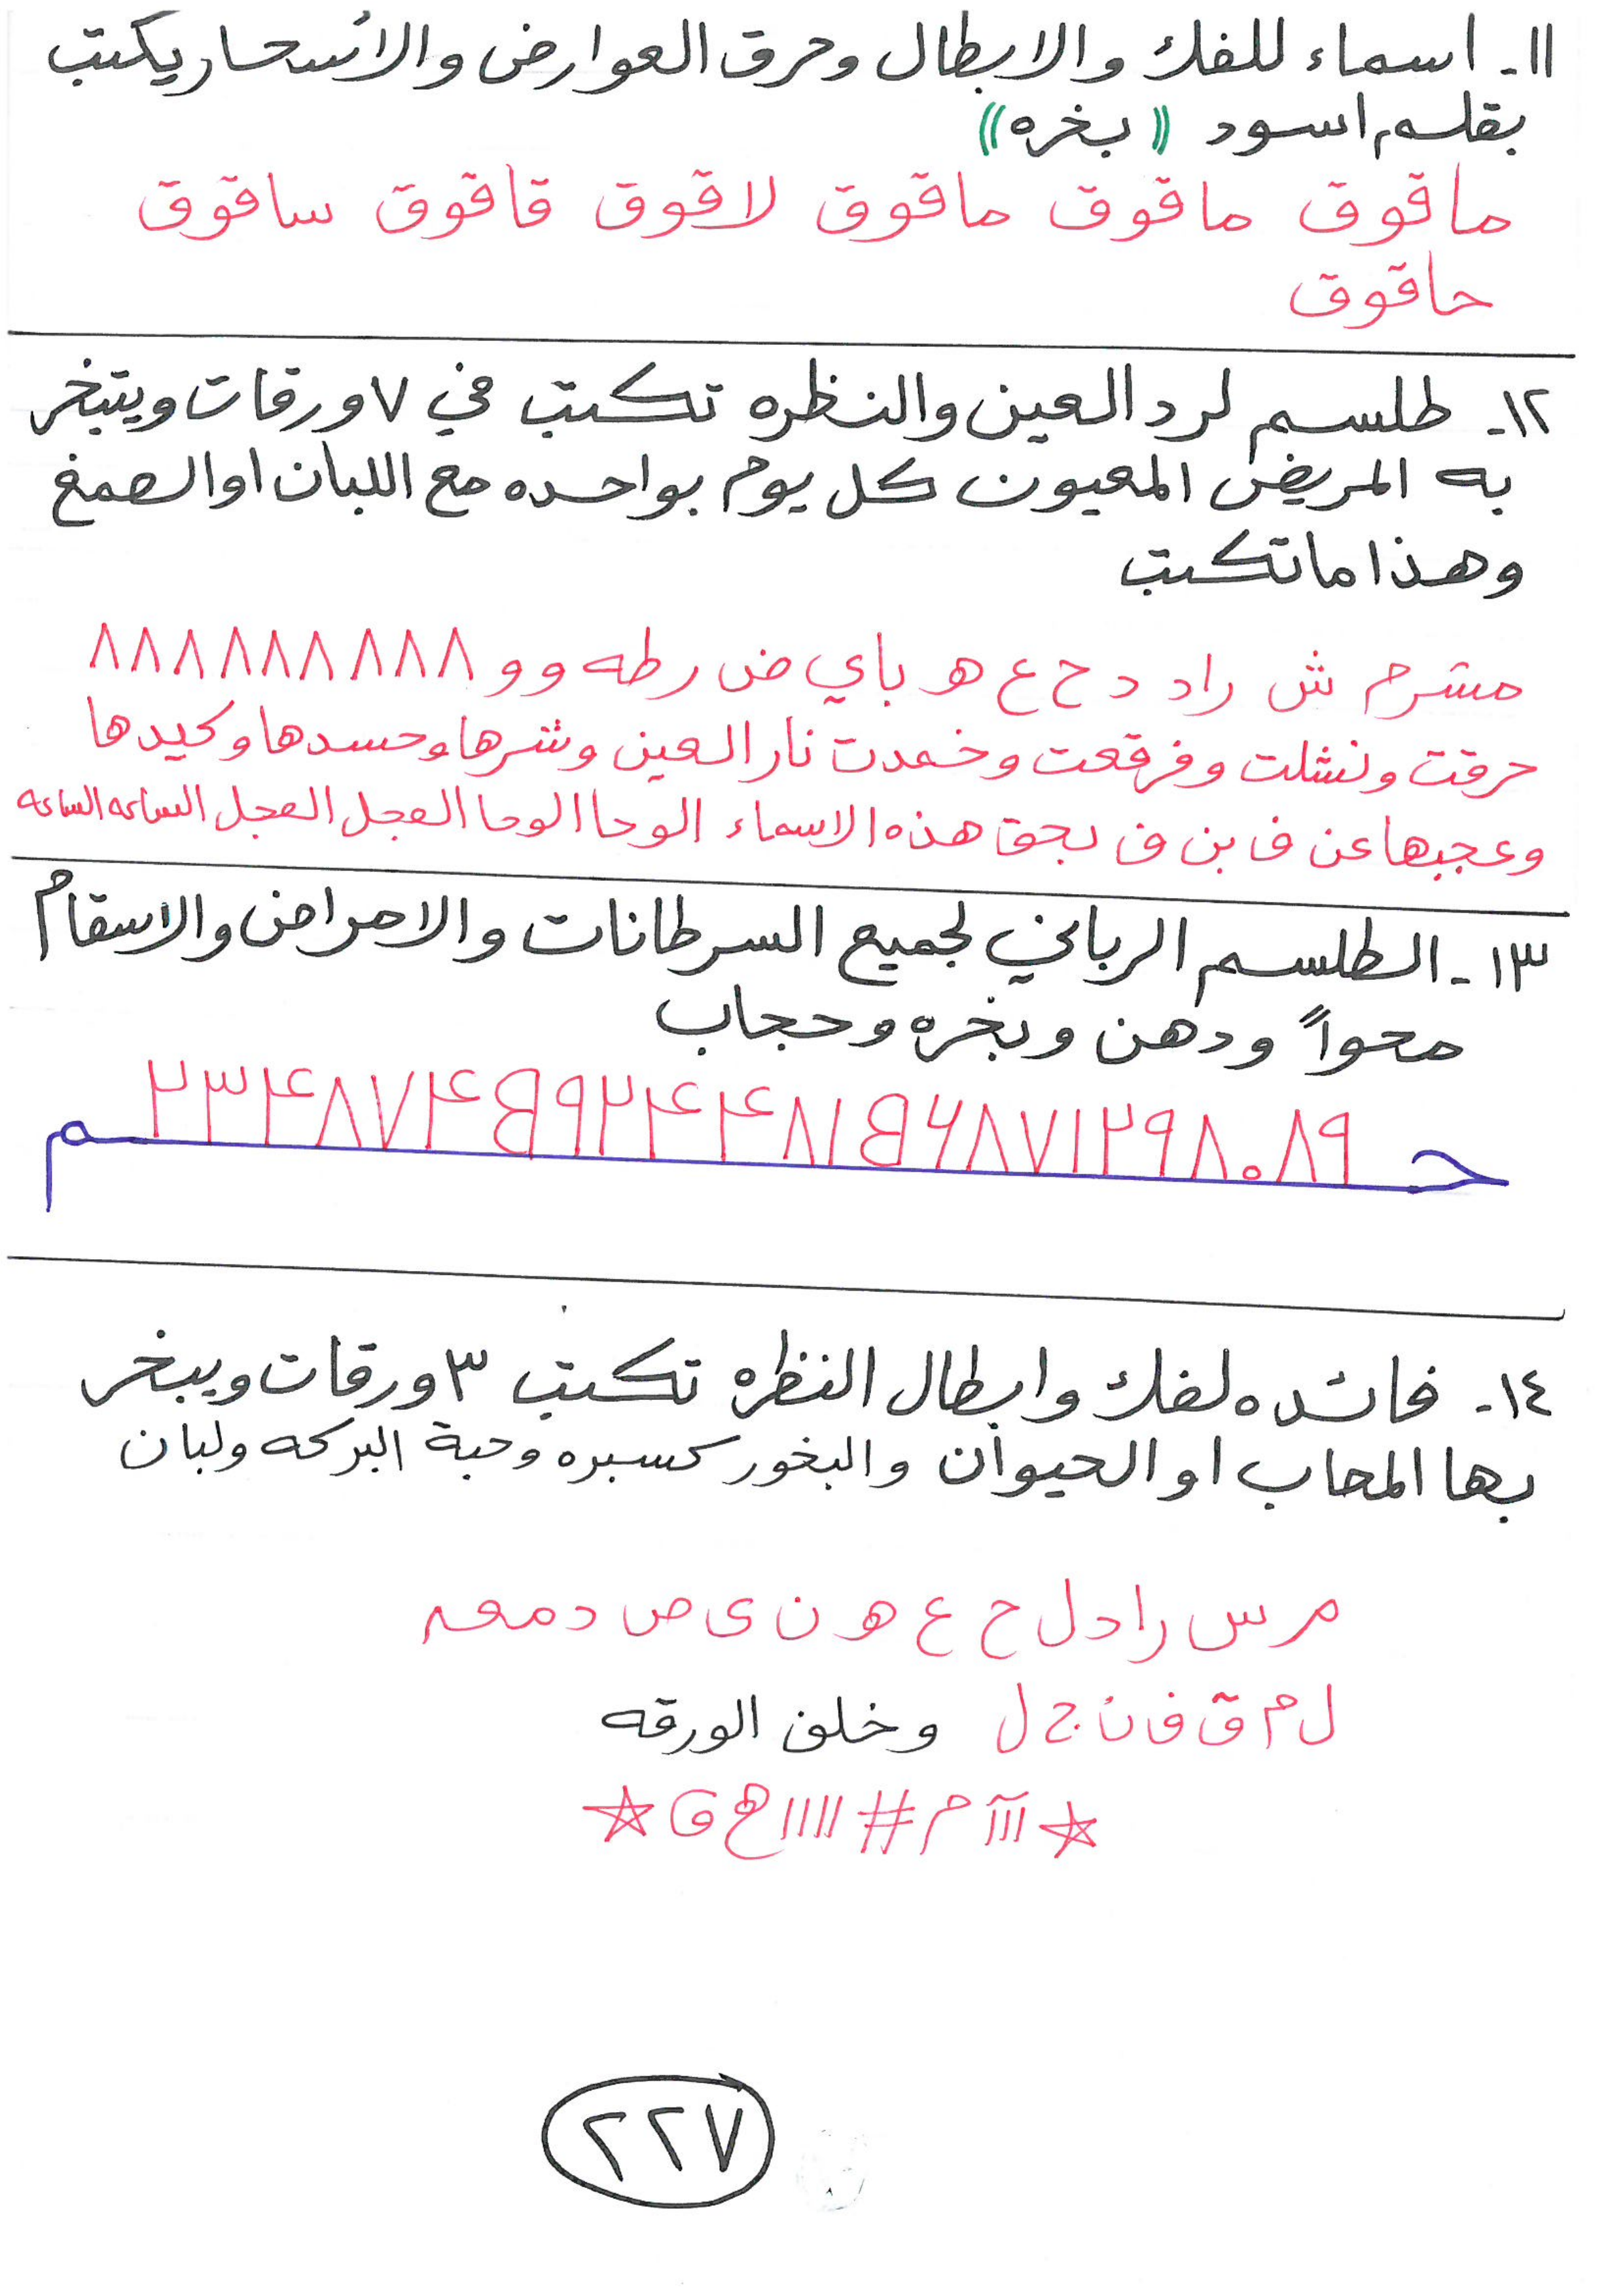 ١١- اسماء للفك والابطال وحرق العوارض والأسحار يكتب
بقلم اسود ((بخره))
ماقوق ماقوق ماقوق لاقوق قاقوق ساقوق
حاقوق
١٢- طلسم لرد العين والنظره تكتب في ٧ ورقات ويتبخر
به المريض المعيون كل يوم بواحده مع اللبان او الصمغ
وهذا ما تكتب
مشرم ش راد د ح ع هـ باي ض رطه و و ٨٨٨٨٨٨٨٨٨
حرقت ونشلت وفرقعت وخمدت نار العين وشرها وحسدها وكيدها
وعجبها عن ف بن ف بحق هذه الاسماء الوحا الوحا العجل العجل الساعه الساعه
١٣- الطلسم الرباني لجميع السرطانات والامراض والاسقام
محواً ودهن وبخره وحجاب
١٤- فائده لفك وابطال النظره تكتب ٣ ورقات ويبخر
بها المصاب او الحيوان والبخور كسبره وحبة البركه ولبان
م س را د ل ح ع هـ ن ى ص دمعه
ل م ق ف ن ج ل وخلف الورقه
٢٢٧